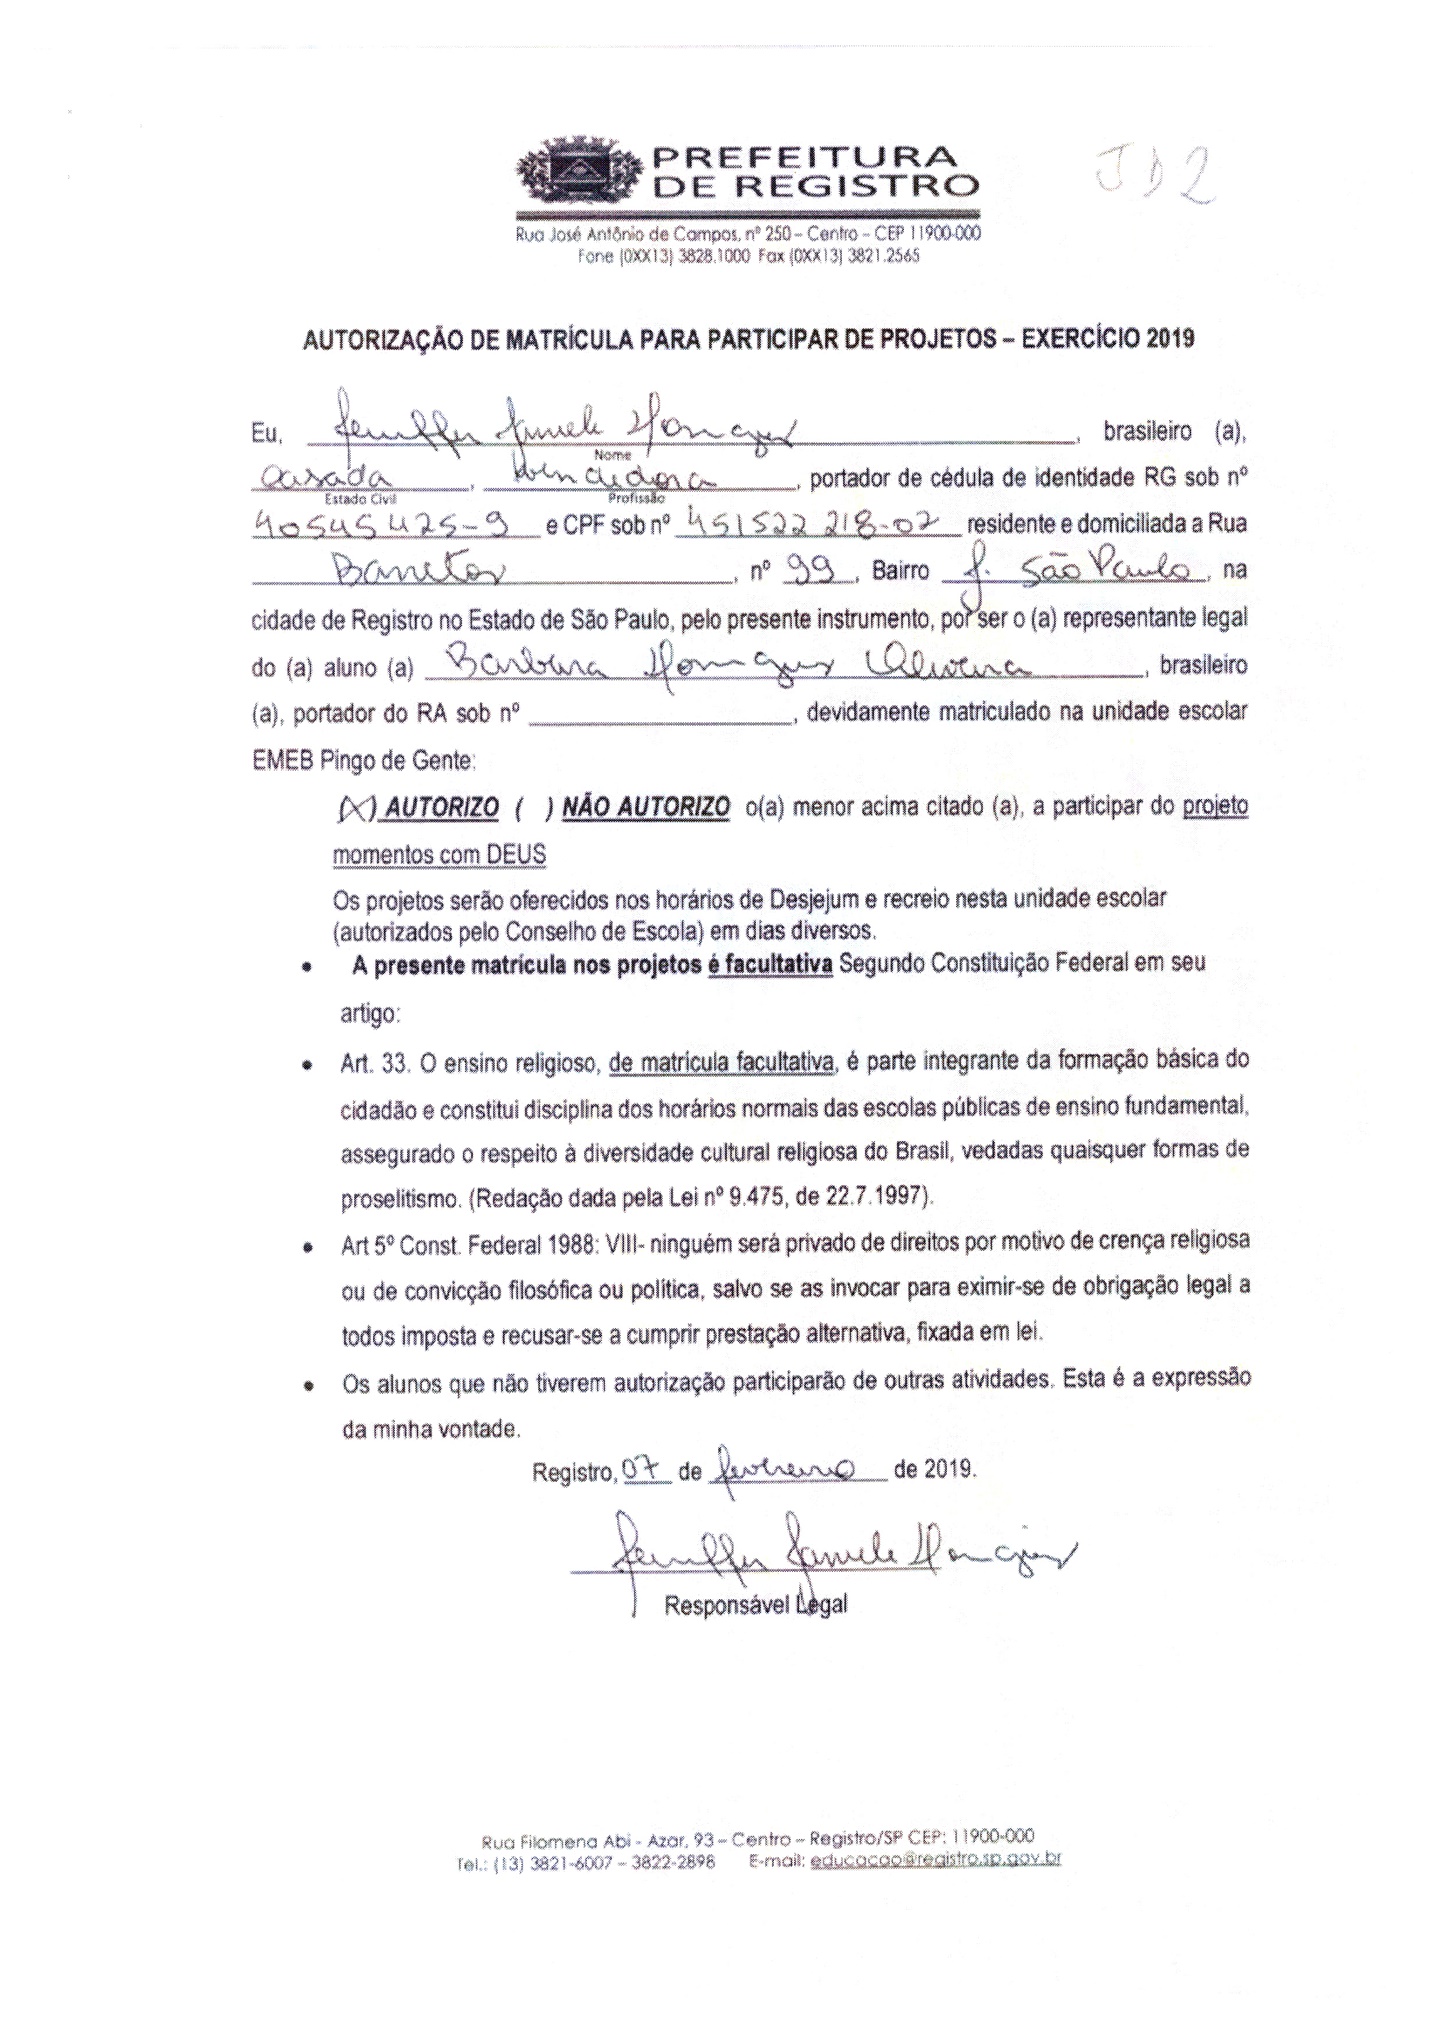 PREFEITURA
DE REGISTRO
JD2
Rua José Antônio de Campos, nº 250 – Centro – CEP 11900-000
Fone (0XX13) 3828.1000 Fax (0XX13) 3821.2565
AUTORIZAÇÃO DE MATRÍCULA PARA PARTICIPAR DE PROJETOS – EXERCÍCIO 2019
Eu, Jeniffer, brasileiro (a),
Nome
Casada, Vendedora, portador de cédula de identidade RG sob nº
Estado Civil Profissão
40545425-9 e CPF sob nº 451522218-02 residente e domiciliada a Rua
, nº 99, Bairro J. São Paulo, na
cidade de Registro no Estado de São Paulo, pelo presente instrumento, por ser o (a) representante legal
do (a) aluno (a) Barbara Oliveira, brasileiro
(a), portador do RA sob nº , devidamente matriculado na unidade escolar
EMEB Pingo de Gente:
(X) AUTORIZO ( ) NÃO AUTORIZO o(a) menor acima citado (a), a participar do projeto
momentos com DEUS
Os projetos serão oferecidos nos horários de Desjejum e recreio nesta unidade escolar
(autorizados pelo Conselho de Escola) em dias diversos.
• A presente matrícula nos projetos é facultativa Segundo Constituição Federal em seu
artigo:
• Art. 33. O ensino religioso, de matrícula facultativa, é parte integrante da formação básica do
cidadão e constitui disciplina dos horários normais das escolas públicas de ensino fundamental,
assegurado o respeito à diversidade cultural religiosa do Brasil, vedadas quaisquer formas de
proselitismo. (Redação dada pela Lei nº 9.475, de 22.7.1997).
• Art 5º Const. Federal 1988: VIII- ninguém será privado de direitos por motivo de crença religiosa
ou de convicção filosófica ou política, salvo se as invocar para eximir-se de obrigação legal a
todos imposta e recusar-se a cumprir prestação alternativa, fixada em lei.
• Os alunos que não tiverem autorização participarão de outras atividades. Esta é a expressão
da minha vontade.
Registro, 07 de fevereiro de 2019.
Jeniffer
Responsável Legal
Rua Filomena Abi - Azar, 93 – Centro – Registro/SP CEP: 11900-000
Tel.: (13) 3821-6007 – 3822-2898 E-mail: educacao@registro.sp.gov.br